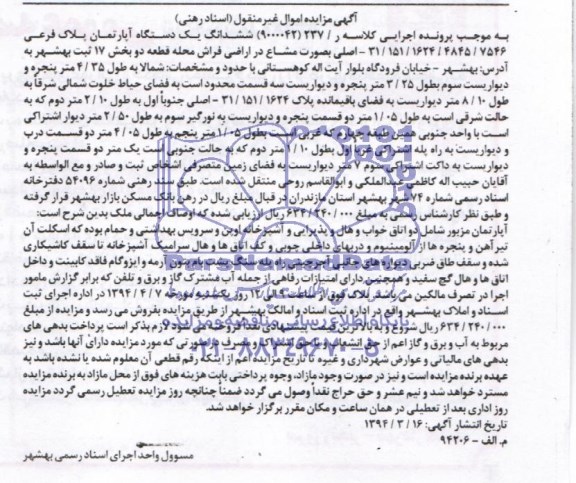 آگهی مزایده اموال غیرمنقول (اسناد رهنی)
به موجب پرونده اجرایی کلاسه ر / ۲۳۷ (۹۰۰۰۰۴۲) ششدانگ یک دستگاه آپارتمان پلاک فرعی
۷۵۴۶ / ۴۸۴۵ / ۱۶۲۴ / ۱۵۱ / ۳۱ - اصلی بصورت مشاع در اراضی فراش محله قطعه دو بخش ۱۷ ثبت بهشهر به
آدرس: بهشهر - خیابان فرودگاه بلوار آیت اله کوهستانی با حدود و مشخصات: شمالا به طول ۳۵ / ۴ متر پنجره و
دیواریست سوم بطول ۲۵ / ۳ متر پنجره و دیواریست سه قسمت محدود است به فضای حیاط خلوت شمالی شرقاً به
طول ۱۰ / ۸ متر دیواریست به فضای باقیمانده پلاک ۱۶۲۴ / ۱۵۱ / ۳۱ - اصلی جنوباً اول به طول ۱۰ / ۲ متر دوم که به
حالت شرقی است به طول ۰۵ / ۱ متر دو قسمت پنجره و دیواریست به نورگیر سوم به طول ۵۰ / ۲ متر دیوار اشتراکی
است با واحد جنوبی همین طبقه چهارم که غربی است بطول ۰۵ / ۱ متر پنجم به طول ۰۵ / ۴ متر دو قسمت درب
و دیواریست به راه پله اشتراکی غرباً اول بطول ۱۰ / متر دوم که به حالت جنوبی است یک متر دو قسمت پنجره و
دیواریست به داکت اشتراکی سوم ۷ متر دیواریست به فضای زمین متصرفی اشخاص ثبت و صادر و مع الواسطه به
آقایان حبیب اله کاظمی عبدالملکی و ابوالقاسم روحی منتقل شده است. طبق سند رهنی شماره ۵۴۰۹۶ دفترخانه
اسناد رسمی شماره ۷۴ شهر بهشهر استان مازندران در قبال مبلغ ریال در رهن بانک مسکن بازار بهشهر قرار گرفته
و طبق نظر کارشناس رسمی به مبلغ ۰۰۰ / ۶۳۴/۲۴۰ ریال ارزیابی شده که اوصاف اجمالی ملک بدین شرح است:
آپارتمان مزبور شامل دو اتاق خواب و هال و پذیرایی و آشپزخانه اوپن و سرویس بهداشتی و حمام بوده که اسکلت آن
تیر آهن و پنجره ها از آلومینیوم و دربهای داخلی چوبی و کف اتاق ها و هال سرامیک آشپزخانه تا سقف کاشیکاری
شده و سقف طاق ضربی دیواره های جانبی آجر چینی راه پله سنگ پشت بام بدون آرمه و ایزوگام فاقد کابینت و داخل
اتاق ها و هال گچ سفید و همچنین دارای امتیازات رفاهی از جمله آب مشترک گاز و برق و تلفن که برابر گزارش مامور
اجرا در تصرف مالکین می باشد. پلاک فوق از ساعت ۹ الی ۱۲ روز یکشنبه مورخه ۷ / ۴ / ۱۳۹۴ در اداره اجرای ثبت
اسناد و املاک بهشهر واقع در اداره ثبت اسناد و املاک بهشهر از طریق مزایده بفروش می رسد و مزایده از مبلغ
۰۰۰ / ۶۳۴/۲۴۰ ریال شروع و به بالاترین قیمت پیشنهادی نقداً فروخته می شود لازم بذکر است پرداخت بدهی های
مربوط به آب و برق و گاز اعم از حق انشعاب و یا حق اشتراک و مصرف در صورتی که مورد مزایده دارای آنها باشد و نیز
بدهی های مالیاتی و عوارض شهرداری و غیره تا تاریخ مزایده اعم از اینکه رقم قطعی آن معلوم شده یا نشده باشد به
عهده برنده مزایده است و نیز در صورت وجود مازاد، وجوه پرداختی بابت هزینه های فوق از محل مازاد به برنده مزایده
مسترد خواهد شد و نیم عشر و حق حراج نقداً وصول می گردد ضمناً چنانچه روز مزایده تعطیل رسمی گردد مزایده
روز اداری بعد از تعطیلی در همان ساعت و مکان مقرر برگزار خواهد شد.
تاریخ انتشار آگهی: ۱۶ / ۳ / ۱۳۹۴
م. الف - ۹۴۲۰۶
مسوول واحد اجرای اسناد رسمی بهشهر
ParsNamadData
پایگاه اطلاع رسانی مناقصه و مزایده
۰۲۱-۸۸۳۴۹۶۷۰-۵